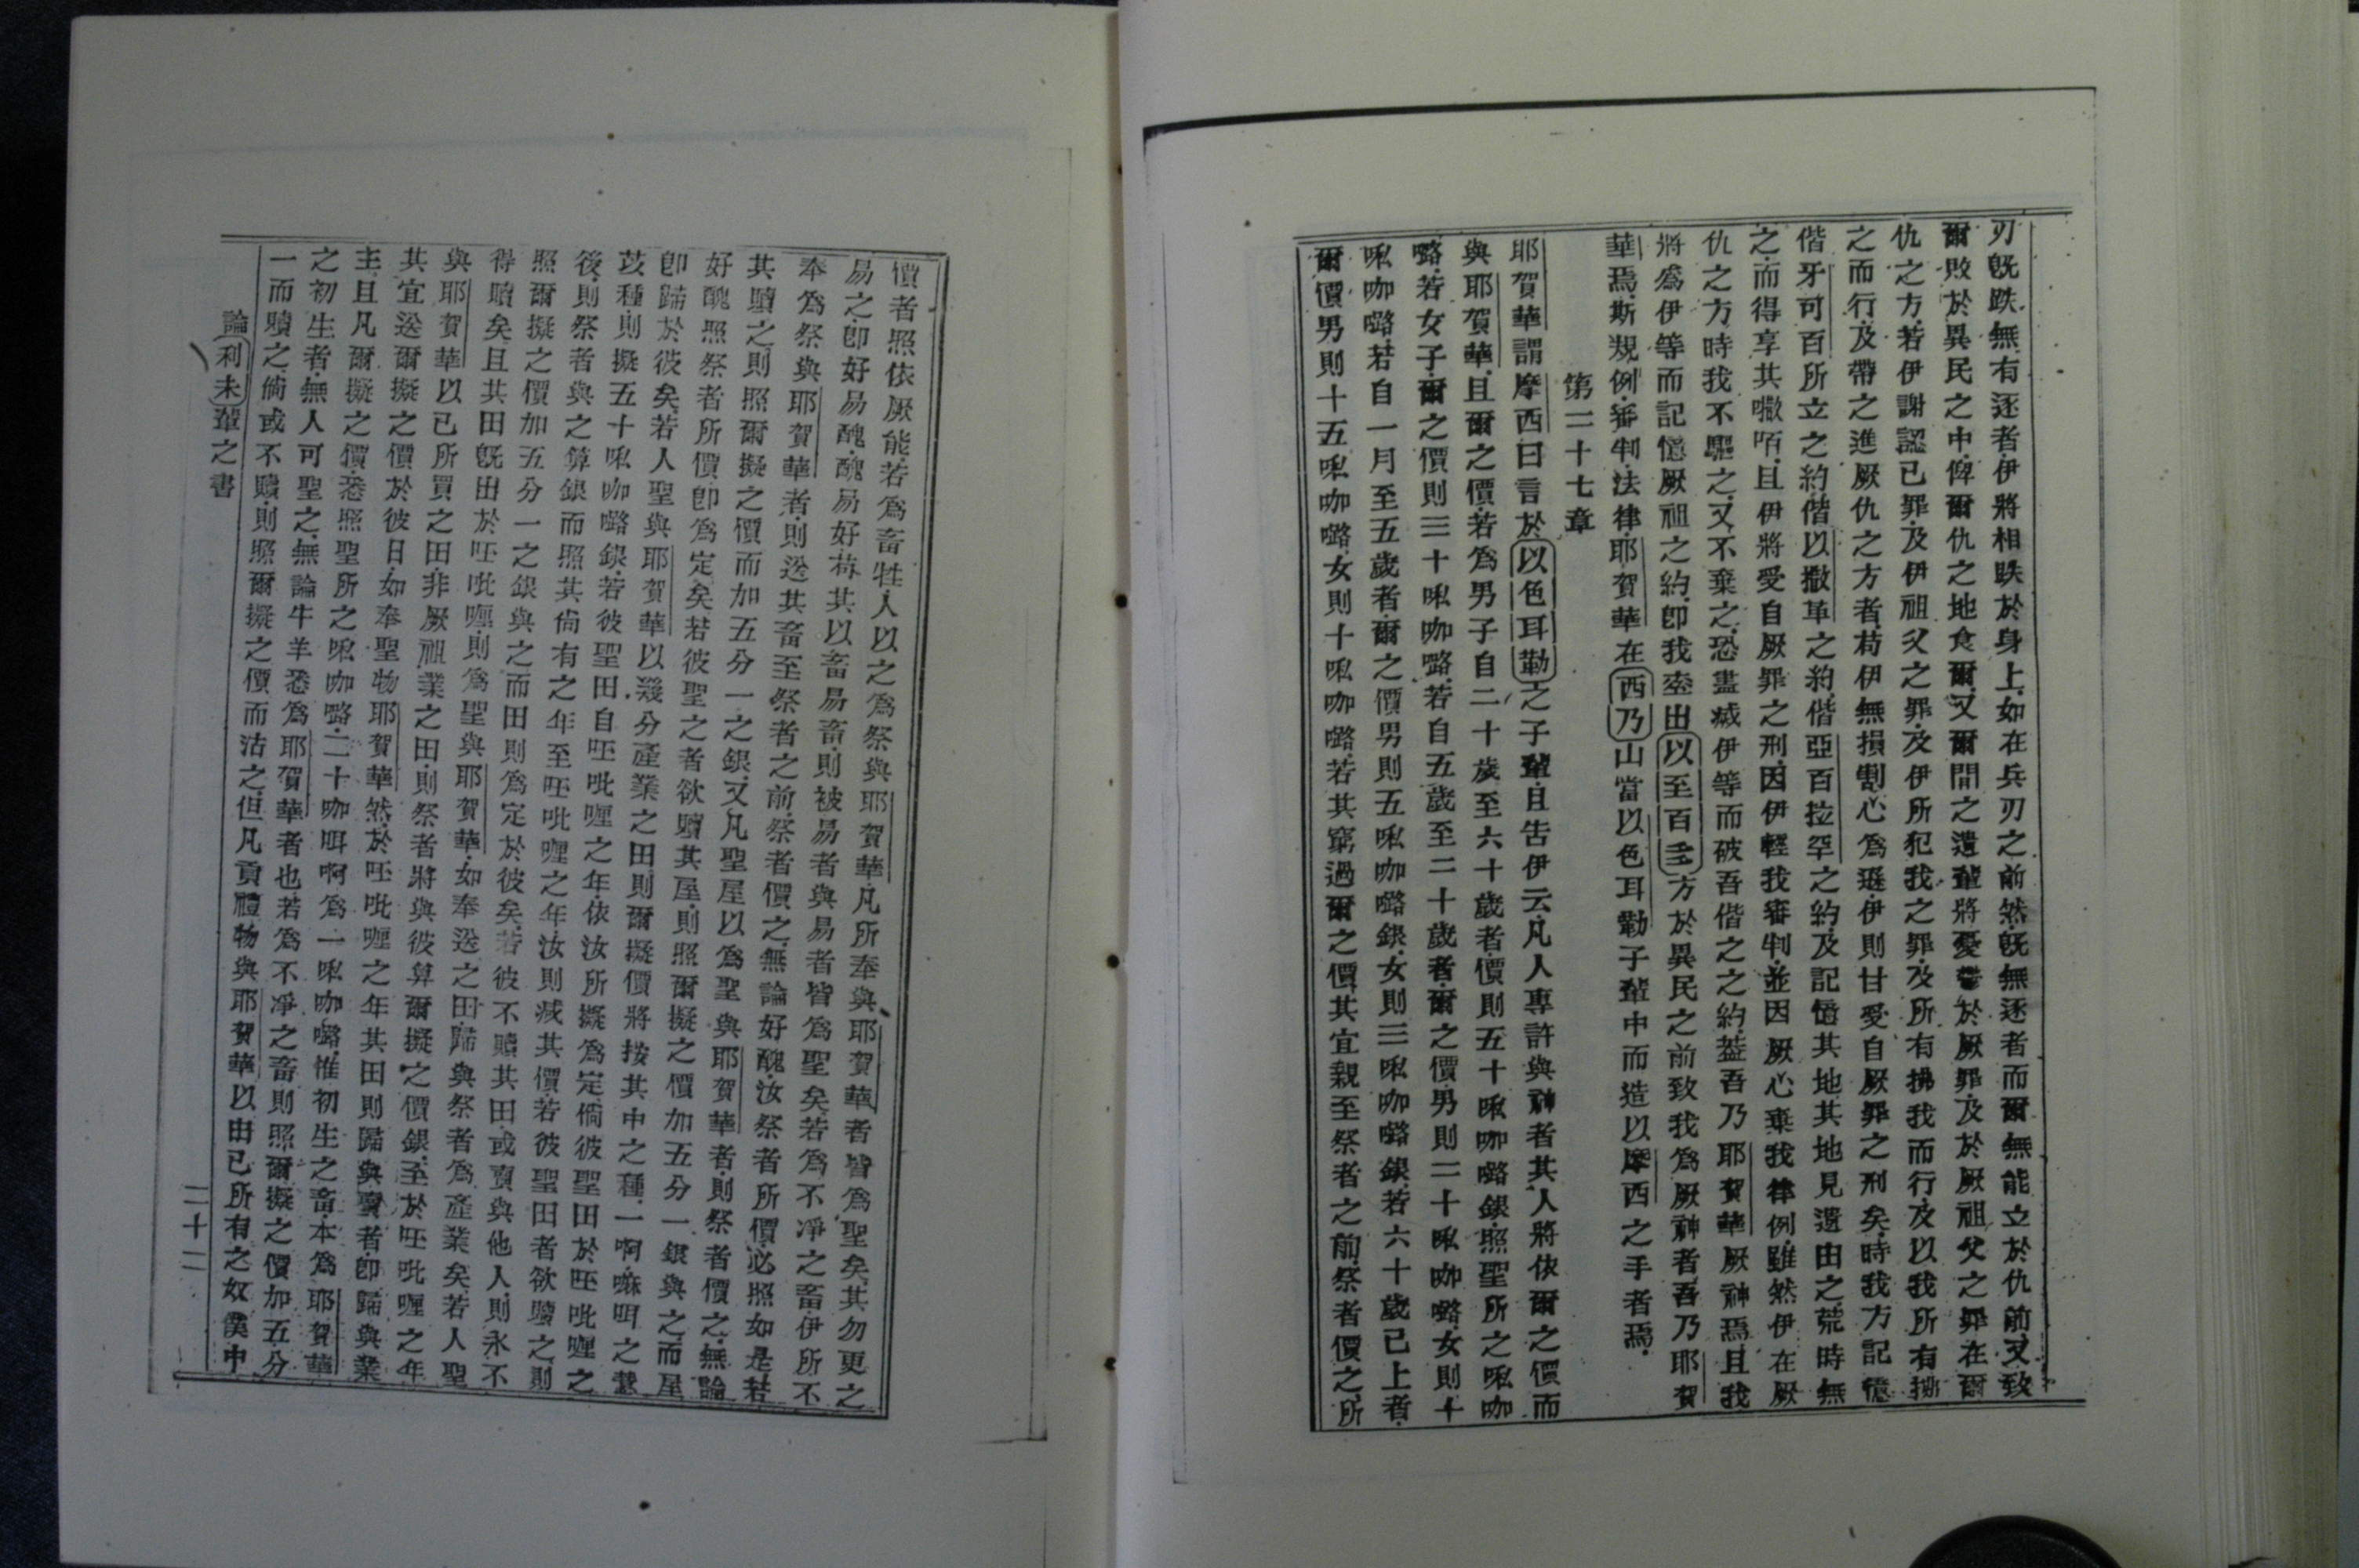 刃旣跌無有逐者.伊將相跌於身上.如在兵刃之前然.旣無逐者而爾無能立於仇前.又致
爾敗於異民之中.俾爾仇之地食爾.又爾間之遺輩將憂鬱於厥罪.及於厥祖父之罪在爾
仇之方.若伊謝認己罪.及伊祖父之罪.及伊所犯我之罪.及所有拂我而行.及以我所有拂
之而行.及帶之進厥仇之方者.苟伊無損割心爲遜.伊則甘受自厥罪之刑矣.時我方記憶
偕牙可百所立之約.偕以撒革之約.偕亞百拉罕之約.及記憶其地.其地見遺由之.荒時無
之.而得享其𠾭咟.且伊將受自厥罪之刑.因伊輕我審判.並因厥心棄我律例.雖然伊在厥
仇之方時.我不驅之.又不棄之.恐盡滅伊等而破吾偕之之約.蓋吾乃耶賀華厥神焉.且我
將爲伊等而記憶厥祖之約.卽我牽出以至百至方於異民之前.致我爲厥神者.吾乃耶賀
華焉.斯規例.審判.法律.耶賀華在西乃山當以色耳勒子輩中而造以摩西之手者焉.
第二十七章
耶賀華謂摩西曰.言於以色耳勒之子輩.且告伊云.凡人專許與神者.其人將依爾之價而
與耶賀華.且爾之價.若爲男子自二十歲至六十歲者.價則五十𠵽咖𡀔銀.照聖所之𠵽咖
𡀔.若女子.爾之價則三十𠵽咖𡀔.若自五歲至二十歲者.爾之價.男則二十𠵽咖𡀔.女則十
𠵽咖𡀔.若自一月至五歲者.爾之價.男則五𠵽咖𡀔銀.女則三𠵽咖𡀔銀.若六十歲已上者.
爾價男則十五𠵽咖𡀔.女則十𠵽咖𡀔.若其窮過爾之價.其宜親至祭者之前.祭者價之.所
價者照依厥能.若爲畜牲.人以之爲祭與耶賀華.凡所奉與耶賀華者皆爲聖矣.其勿更之
易之.卽好易醜.醜易好.苟其以畜易畜.則被易者與易者皆爲聖矣.若爲不淨之畜.伊所不
奉爲祭與耶賀華者.則送其畜至祭者之前.祭者價之.無論好醜.汝祭者所價.必照如是.若
其贖之.則照爾擬之價而加五分一之銀.又凡聖屋以爲聖與耶賀華者.則祭者價之.無論
好醜.照祭者所價.卽爲定矣.若彼聖之者欲贖其屋.則照爾擬之價加五分一銀與之.而屋
卽歸於彼矣.若人聖與耶賀華以幾分產業之田.則爾擬價將按其中之種.一啊嘛咡之
苡種.則擬五十𠵽咖𡀔銀.若彼聖田自㕵吡喱之年.依汝所擬爲定.倘彼聖田於㕵吡喱之
後.則祭者與之算銀.而照其尙有之年至㕵吡喱之年.汝則減其價.若彼聖田者欲贖之.則
照爾擬之價加五分一之銀與之.而田則爲定於彼矣.若彼不贖其田.或賣與他人.則永不
得贖矣.且其田旣出於㕵吡喱.則爲聖與耶賀華.如奉送之田.歸與祭者爲產業矣.若人聖
與耶賀華以己所買之田.非厥祖業之田.則祭者將與彼算爾擬之價銀.至於㕵吡喱之年.
其宜送爾擬之價於彼日.如奉聖物耶賀華然.於㕵吡喱之年.其田則歸與賣者.卽歸與業
主.且凡爾擬之價.悉照聖所之𠵽咖𡀔.二十咖咡啊爲一𠵽咖𡀔.惟初生之畜.本爲耶賀華
之初生者.無人可聖之.無論牛羊悉爲耶賀華者也.若爲不淨之畜.則照爾擬之價加五分
一而贖之.倘或不贖.則照爾擬之價而沽之.但凡貢禮物與耶賀華.以由己所有之奴僕中
論利未輩之書
二十二